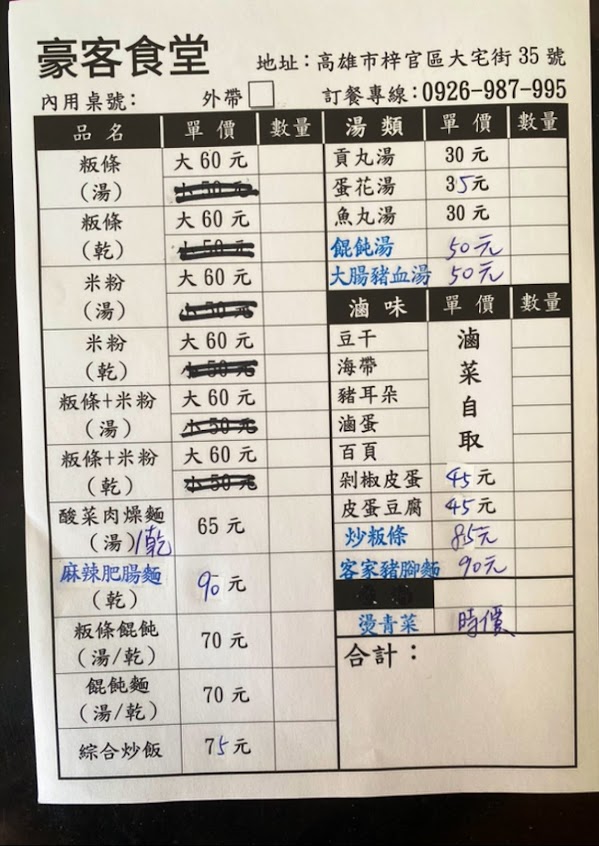 豪客食堂
地址：高雄市梓官區大宅街 35 號
內用桌號： 外帶□ 訂餐專線：0926-987-995
品名 單價 數量
粄條（湯） 大 60 元
小 50 元
粄條（乾） 大 60 元
小 50 元
米粉（湯） 大 60 元
小 50 元
米粉（乾） 大 60 元
小 50 元
粄條+米粉（湯） 大 60 元
小 50 元
粄條+米粉（乾） 大 60 元
小 50 元
酸菜肉燥麵（湯）/乾 65 元
麻辣肥腸麵（乾） 90 元
粄條餛飩（湯/乾） 70 元
餛飩麵（湯/乾） 70 元
綜合炒飯 75 元
湯類 單價 數量
貢丸湯 30 元
蛋花湯 35元
魚丸湯 30 元
餛飩湯 50元
大腸豬血湯 50元
滷味 單價 數量
豆干
海帶
豬耳朵
滷蛋
百頁
滷菜自取
剁椒皮蛋 45元
皮蛋豆腐 45元
炒粄條 85元
客家豬腳麵 90元
燙青菜 時價
合計：